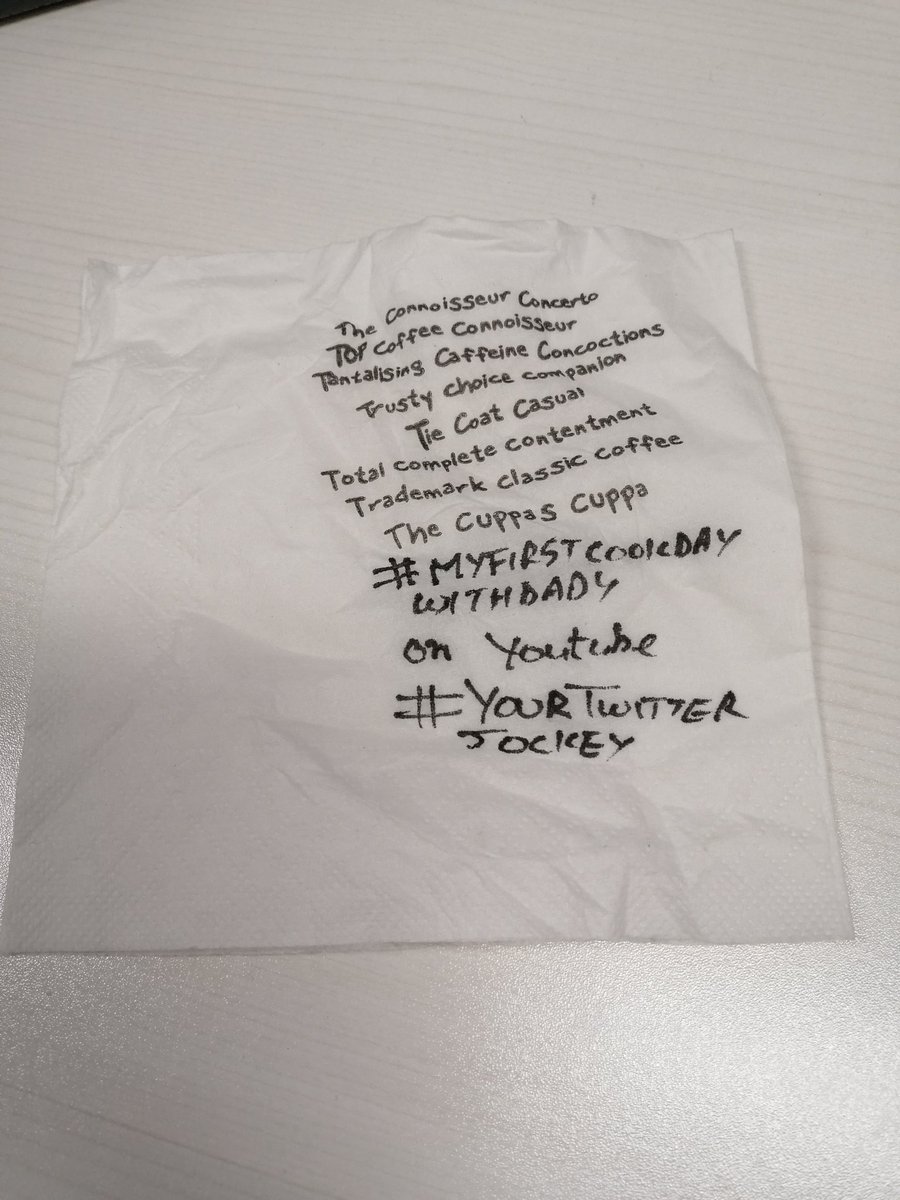 The Connoisseur Concerto
Top Coffee Connoisseur
Tantalising Caffeine Concoctions
Trusty choice companion
Tie Coat Casual
Total complete contentment
Trademark classic coffee
The Cuppas Cuppa
#MYFIRSTCOOKDAY
WITHDADY
on Youtube
#YOURTWITTER
JOCKEY